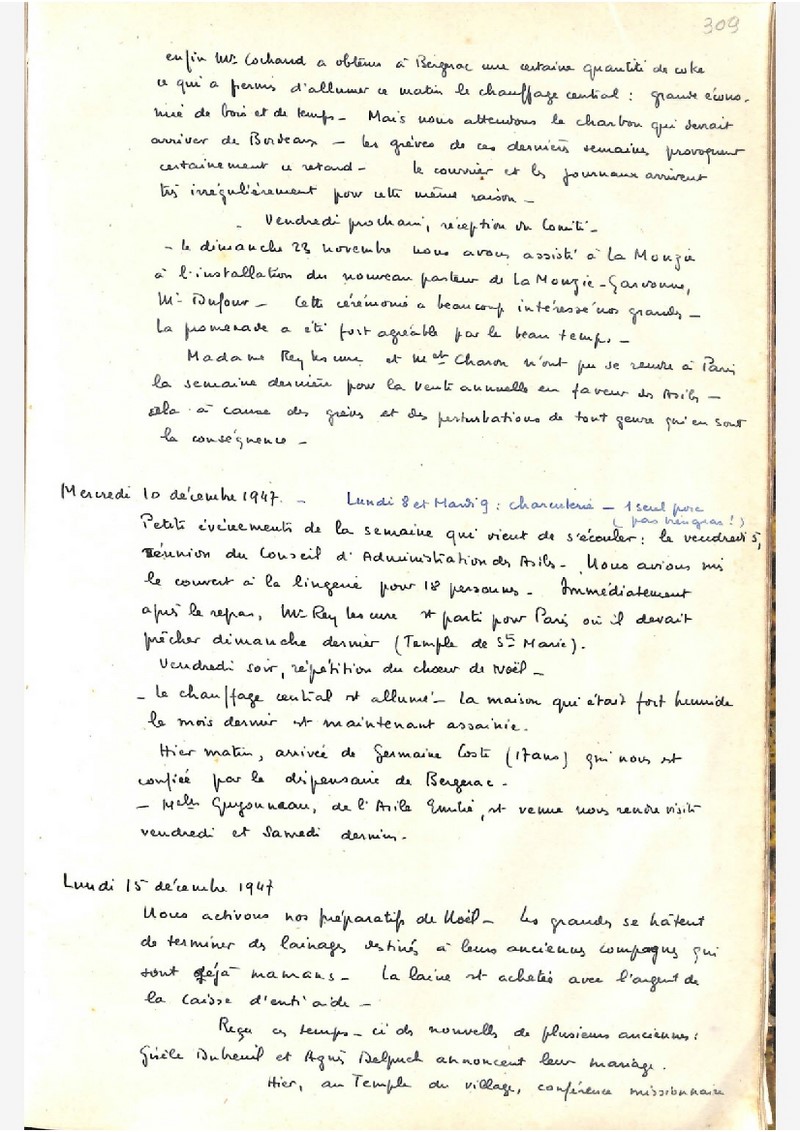 309
enfin Mr. Cochand a obtenu à Bergerac une certaine quantité de coke
ce qui a permis d'allumer ce matin le chauffage central : grande écono-
mie de bois et de temps - Mais nous attendons le charbon qui devrait
arriver de Bordeaux - les grèves de ces dernières semaines provoquent
certainement ce retard - Le courrier et les journaux arrivent
très irrégulièrement pour cette même raison -
Vendredi prochain, réception du Comité -
- Le dimanche 23 novembre nous avons assisté à La Monzie
à l'installation du nouveau pasteur de La Monzie-Gardonne,
Mr Dufour - Cette cérémonie a beaucoup intéressé nos grandes -
La promenade a été fort agréable par le beau temps. -
Madame Rey Lescure et Melle Charon n'ont pu se rendre à Paris
la semaine dernière pour la vente annuelle en faveur des Asiles -
cela à cause des grèves et des perturbations de tout genre qui en sont
la conséquence -
Mercredi 10 décembre 1947. - Lundi 8 et Mardi 9 : charcuterie - 1 seul porc
(pas très gras !)
Petits événements de la semaine qui vient de s'écouler : le vendredi 5,
Réunion du Conseil d'Administration des Asiles - Nous avions mis
le couvert à la lingerie pour 18 personnes - Immédiatement
après le repas, Mr Rey Lescure est parti pour Paris où il devait
prêcher dimanche dernier (Temple de Ste Marie).
Vendredi soir, répétition du chœur de Noël -
- Le chauffage central est allumé - La maison qui était fort humide
le mois dernier est maintenant assainie.
Hier matin, arrivée de Germaine Coste (17 ans) qui nous est
confiée par le dispensaire de Bergerac -
- Melle Guyonneau, de l'Asile Emilie, est venue nous rendre visite
vendredi et samedi derniers -
Lundi 15 décembre 1947
Nous activons nos préparatifs de Noël - Les grandes se hâtent
de terminer des lainages destinés à leurs anciennes compagnes qui
sont déjà mamans - La laine est achetée avec l'argent de
la caisse d'entr'aide -
Reçu ces temps-ci des nouvelles de plusieurs anciennes :
Gisèle Dubreuil et Agnès Delpuch annoncent leur mariage.
Hier, au Temple du village, conférence missionnaire